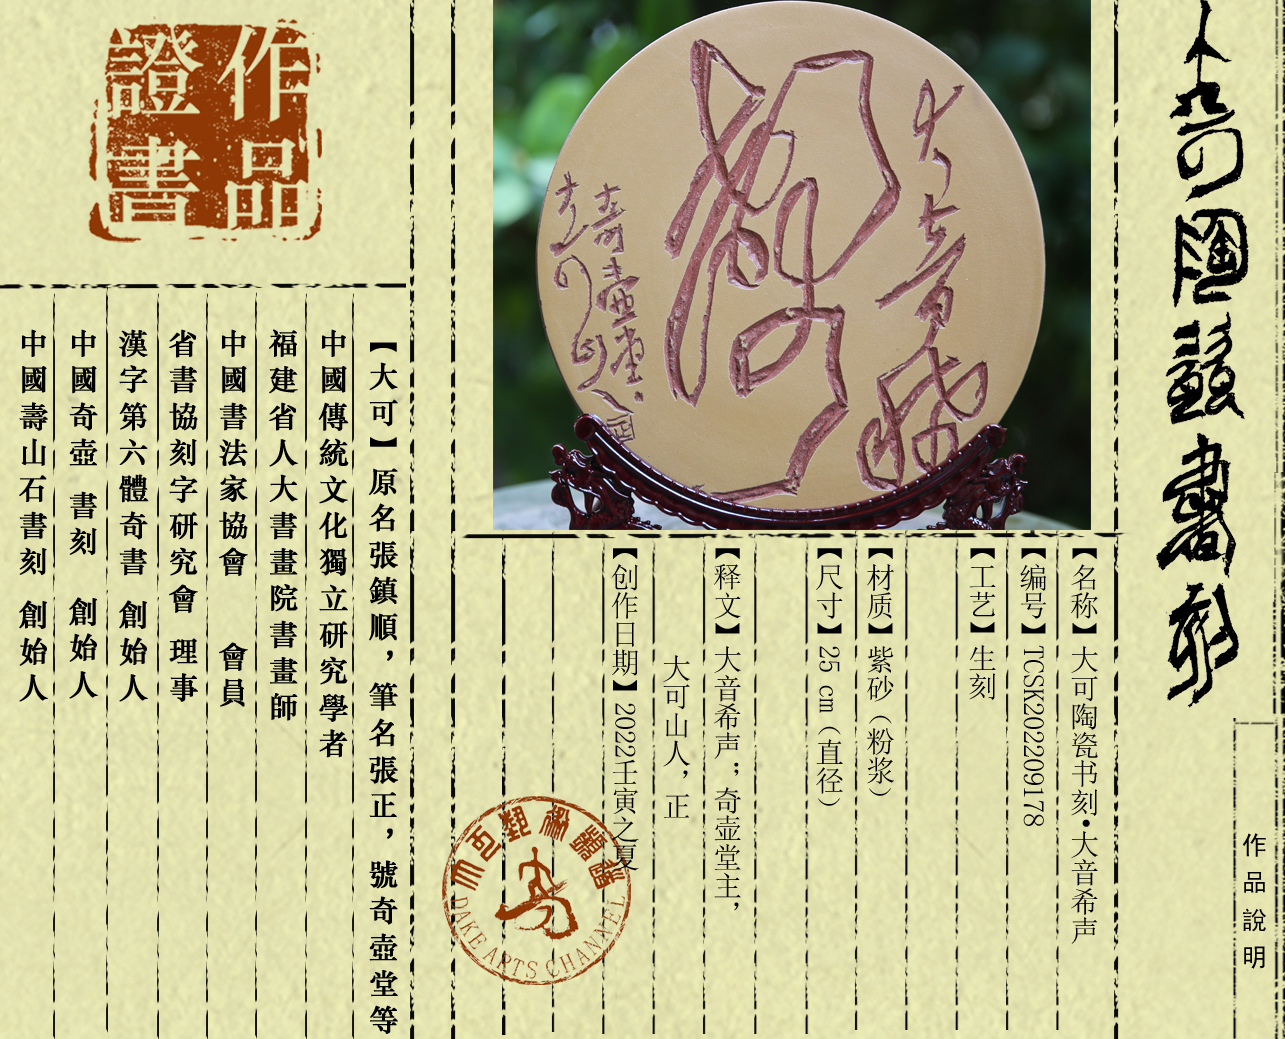 大可陶瓷書刻
作品說明
大音希声
奇壶堂主
大可山人
【名称】大可陶瓷书刻•大音希声
【编号】TCSK202209178
【工艺】生刻
【材质】紫砂（粉浆）
【尺寸】25 cm（直径）
【释文】大音希声；奇壶堂主，
大可山人，正
【创作日期】2022壬寅之夏
大可藝術頻道
DAKE ARTS CHANNEL
作品
證書
【大可】原名張鎮順，筆名張正，號奇壺堂等
中國傳統文化獨立研究學者
福建省人大書畫院書畫師
中國書法家協會 會員
省書協刻字研究會 理事
漢字第六體奇書 創始人
中國奇壺 書刻 創始人
中國壽山石書刻 創始人